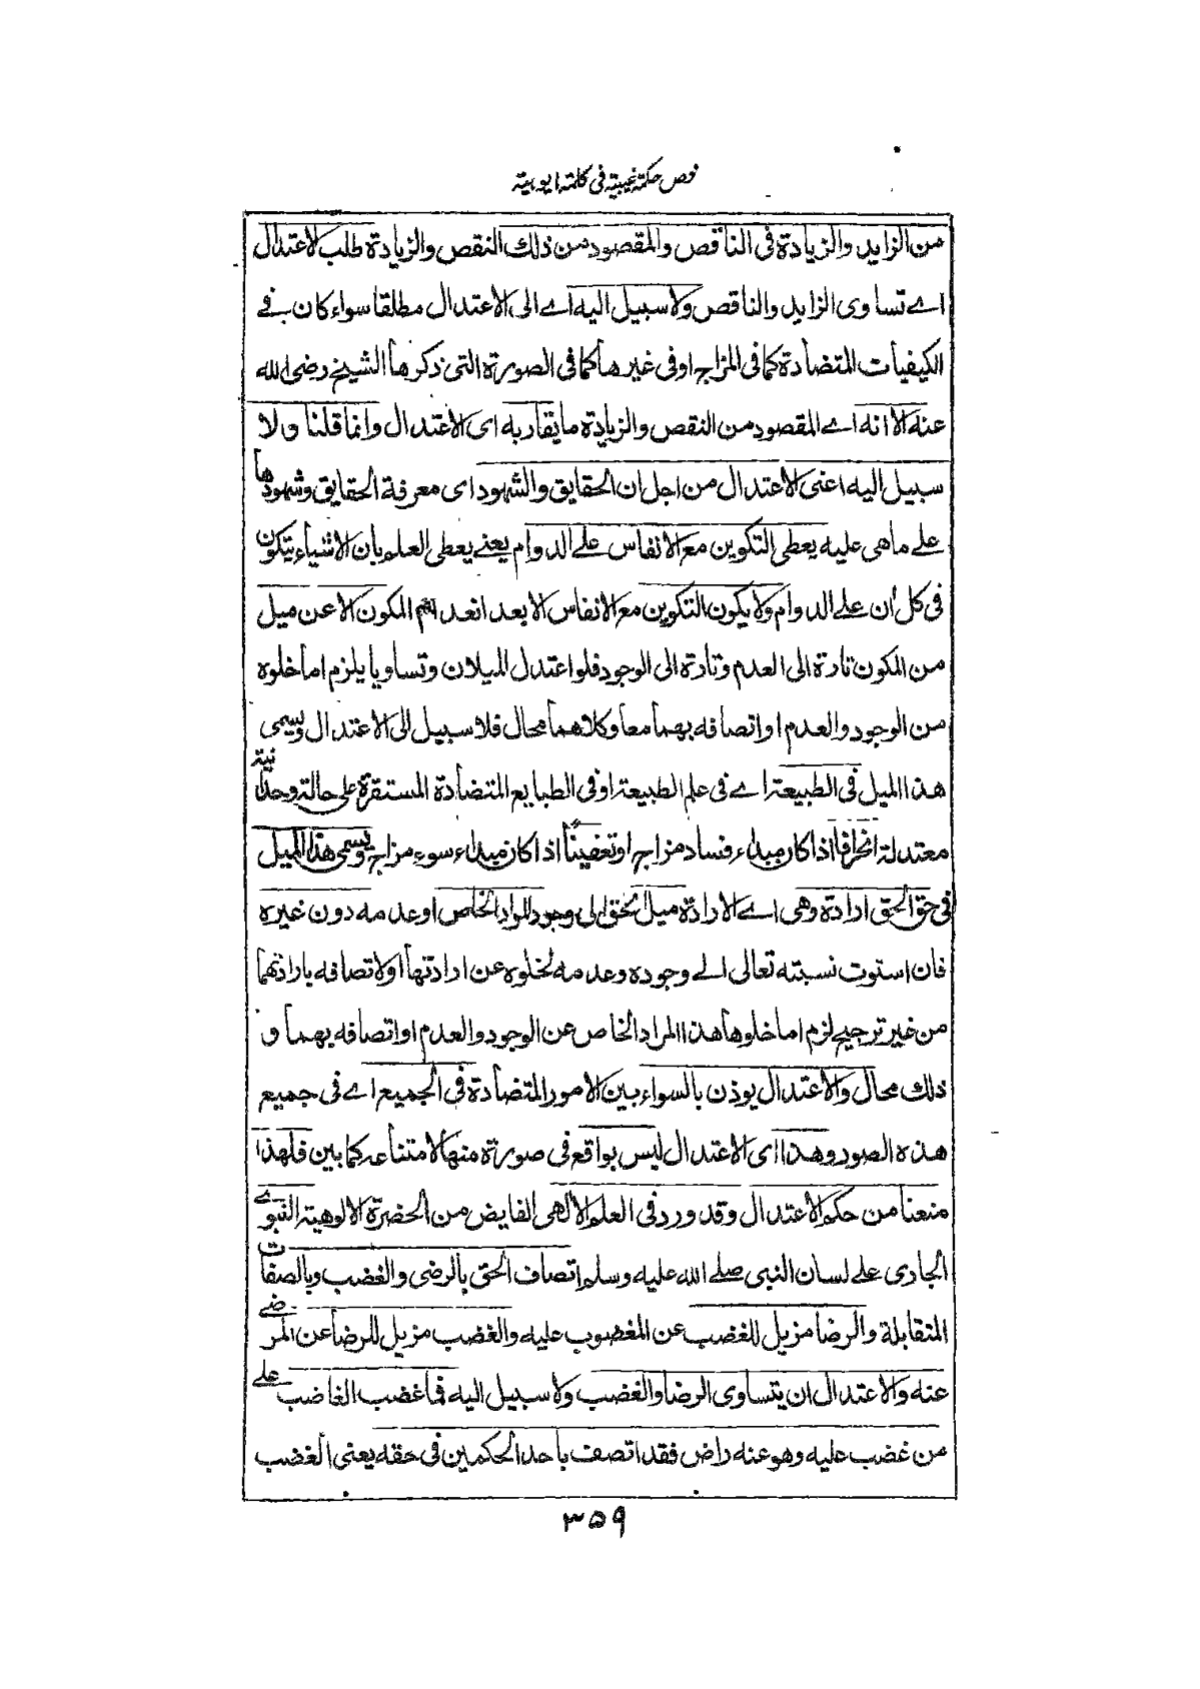 فص حكمة غيبية فى كلمة ايوبية
من الزايد والزيادة فى الناقص والمقصود من ذلك النقص والزيادة طلب الاعتدال
اے تساوى الزايد والناقص ولا سبيل اليه اے الى الاعتدال مطلقا سواء كان فے
الكيفيات المتضادة كما فى المزاج او فى غيرها كما فى الصورة التى ذكرها الشيخ رضى الله
عنه الا انه اے المقصود من النقص والزيادة ما يقاربه اى الاعتدال وانما قلنا ولا
سبيل اليه اعنى الاعتدال من اجل ان الحقايق والشهود اى معرفة الحقايق وشهودها
علے ماهى عليه يعطى التكوين مع الانفاس علے الدوام يعنے يعطى العلم بان الاشياء يتكون
فى كل ان علے الدوام ولا يكون التكوين مع الانفاس الا بعد انعدام المكون الا عن ميل
من المكون تارة الى العدم وتارة الى الوجود فلو اعتدل الميلان وتساويا يلزم اما خلوه
من الوجود والعدم او اتصافه بهما معا وكلاهما محال فلا سبيل الى الاعتدال ويسمى
هذا الميل فى الطبيعة اے فى علم الطبيعة او فى الطبايع المتضادة المستقرة على حالة وحدانية
معتدلة انحرافا اذا كان مبداء فساد مزاج او تعفينا اذا كان مبداء سوء مزاج ويسمى هذا الميل
فى حق الحق ارادة وهى اے الارادة ميل الحق الى وجود المراد الخاص او عدمه دون غيره
فان استوت نسبته تعالى الے وجوده وعدمه لخلوه عن ارادتها او لاتصافه بارادتهما
من غير ترجيح لزم اما خلوها هذا المراد الخاص عن الوجود والعدم او اتصافه بهما و
ذلك محال والاعتدال يوذن بالسواء بين الامور المتضادة فى الجميع اے فى جميع
هذه الصور وهذا اى الاعتدال ليس بواقع فى صورة منها لامتناعه كما بين فلهذا
منعنا من حكم الاعتدال وقد ورد فى العلم الالهى الفايض من الحضرة الالوهية النبوے
الجارى علے لسان النبى صلے الله عليه وسلم اتصاف الحق بالرضى والغضب وبالصفات
المتقابلة والرضا مزيل للغضب عن المغضوب عليه والغضب مزيل للرضا عن المرضے
عنه والاعتدال ان يتساوى الرضا والغضب ولا سبيل اليه فما غضب الغاضب علے
من غضب عليه وهو عنه راض فقد اتصف باحد الحكمين فى حقه يعنى الغضب
٣٥٩